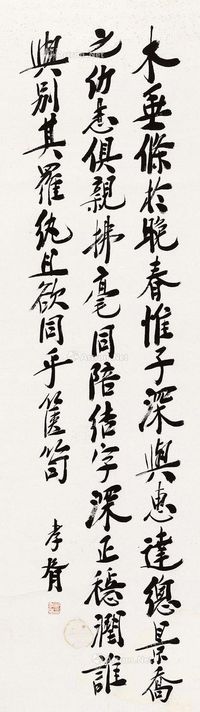 木垂條於晚春惟子深與惠達總景喬
之仂志俱親拂毫同陪結字深正穩潤誰
與別其羅紈且欲同乎篋笥
孝胥